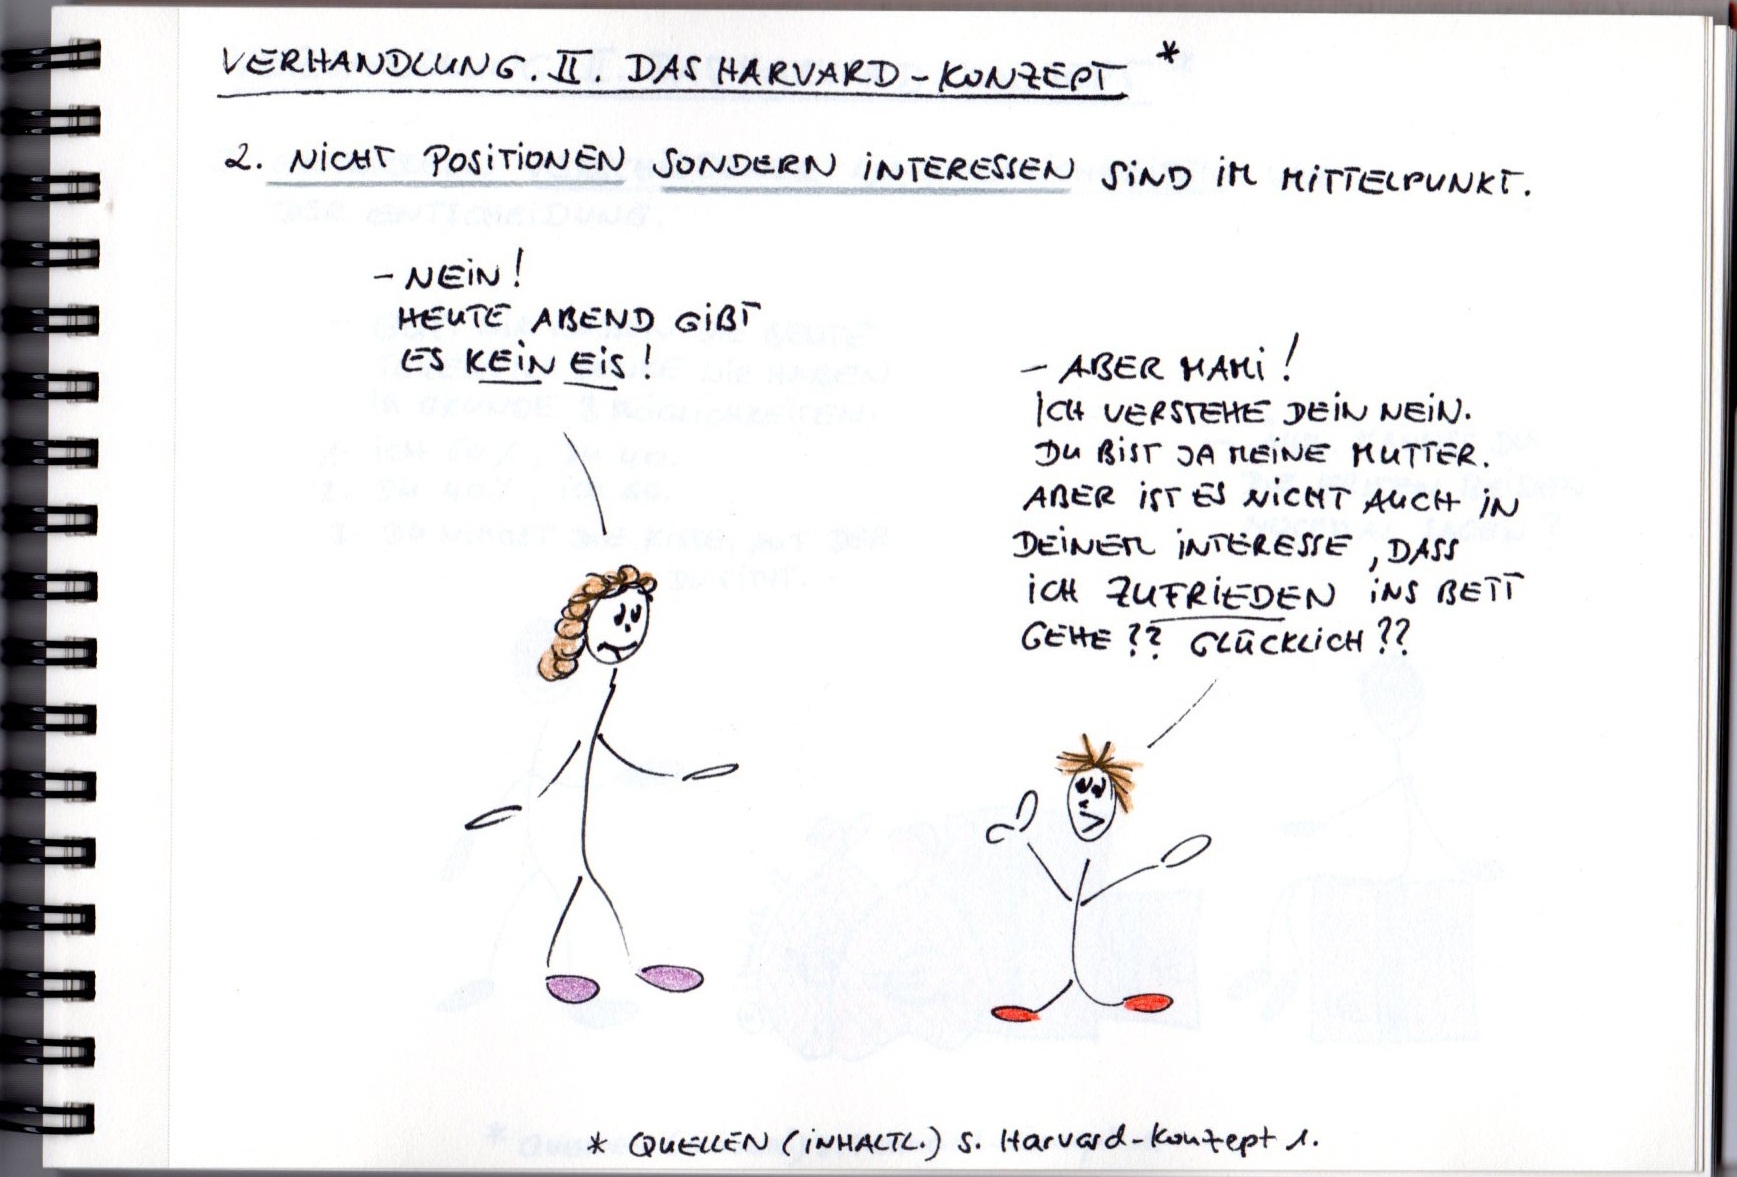 VERHANDLUNG. II. DAS HARVARD-KONZEPT *
2. NICHT POSITIONEN SONDERN INTERESSEN SIND IM MITTELPUNKT.
- NEIN!
HEUTE ABEND GIBT
ES KEIN EIS!
- ABER MAMI!
ICH VERSTEHE DEIN NEIN.
DU BIST JA MEINE MUTTER.
ABER IST ES NICHT AUCH IN
DEINEM INTERESSE, DASS
ICH ZUFRIEDEN INS BETT
GEHE?? GLÜCKLICH??
* QUELLEN (INHALTL.) S. Harvard-Konzept 1.